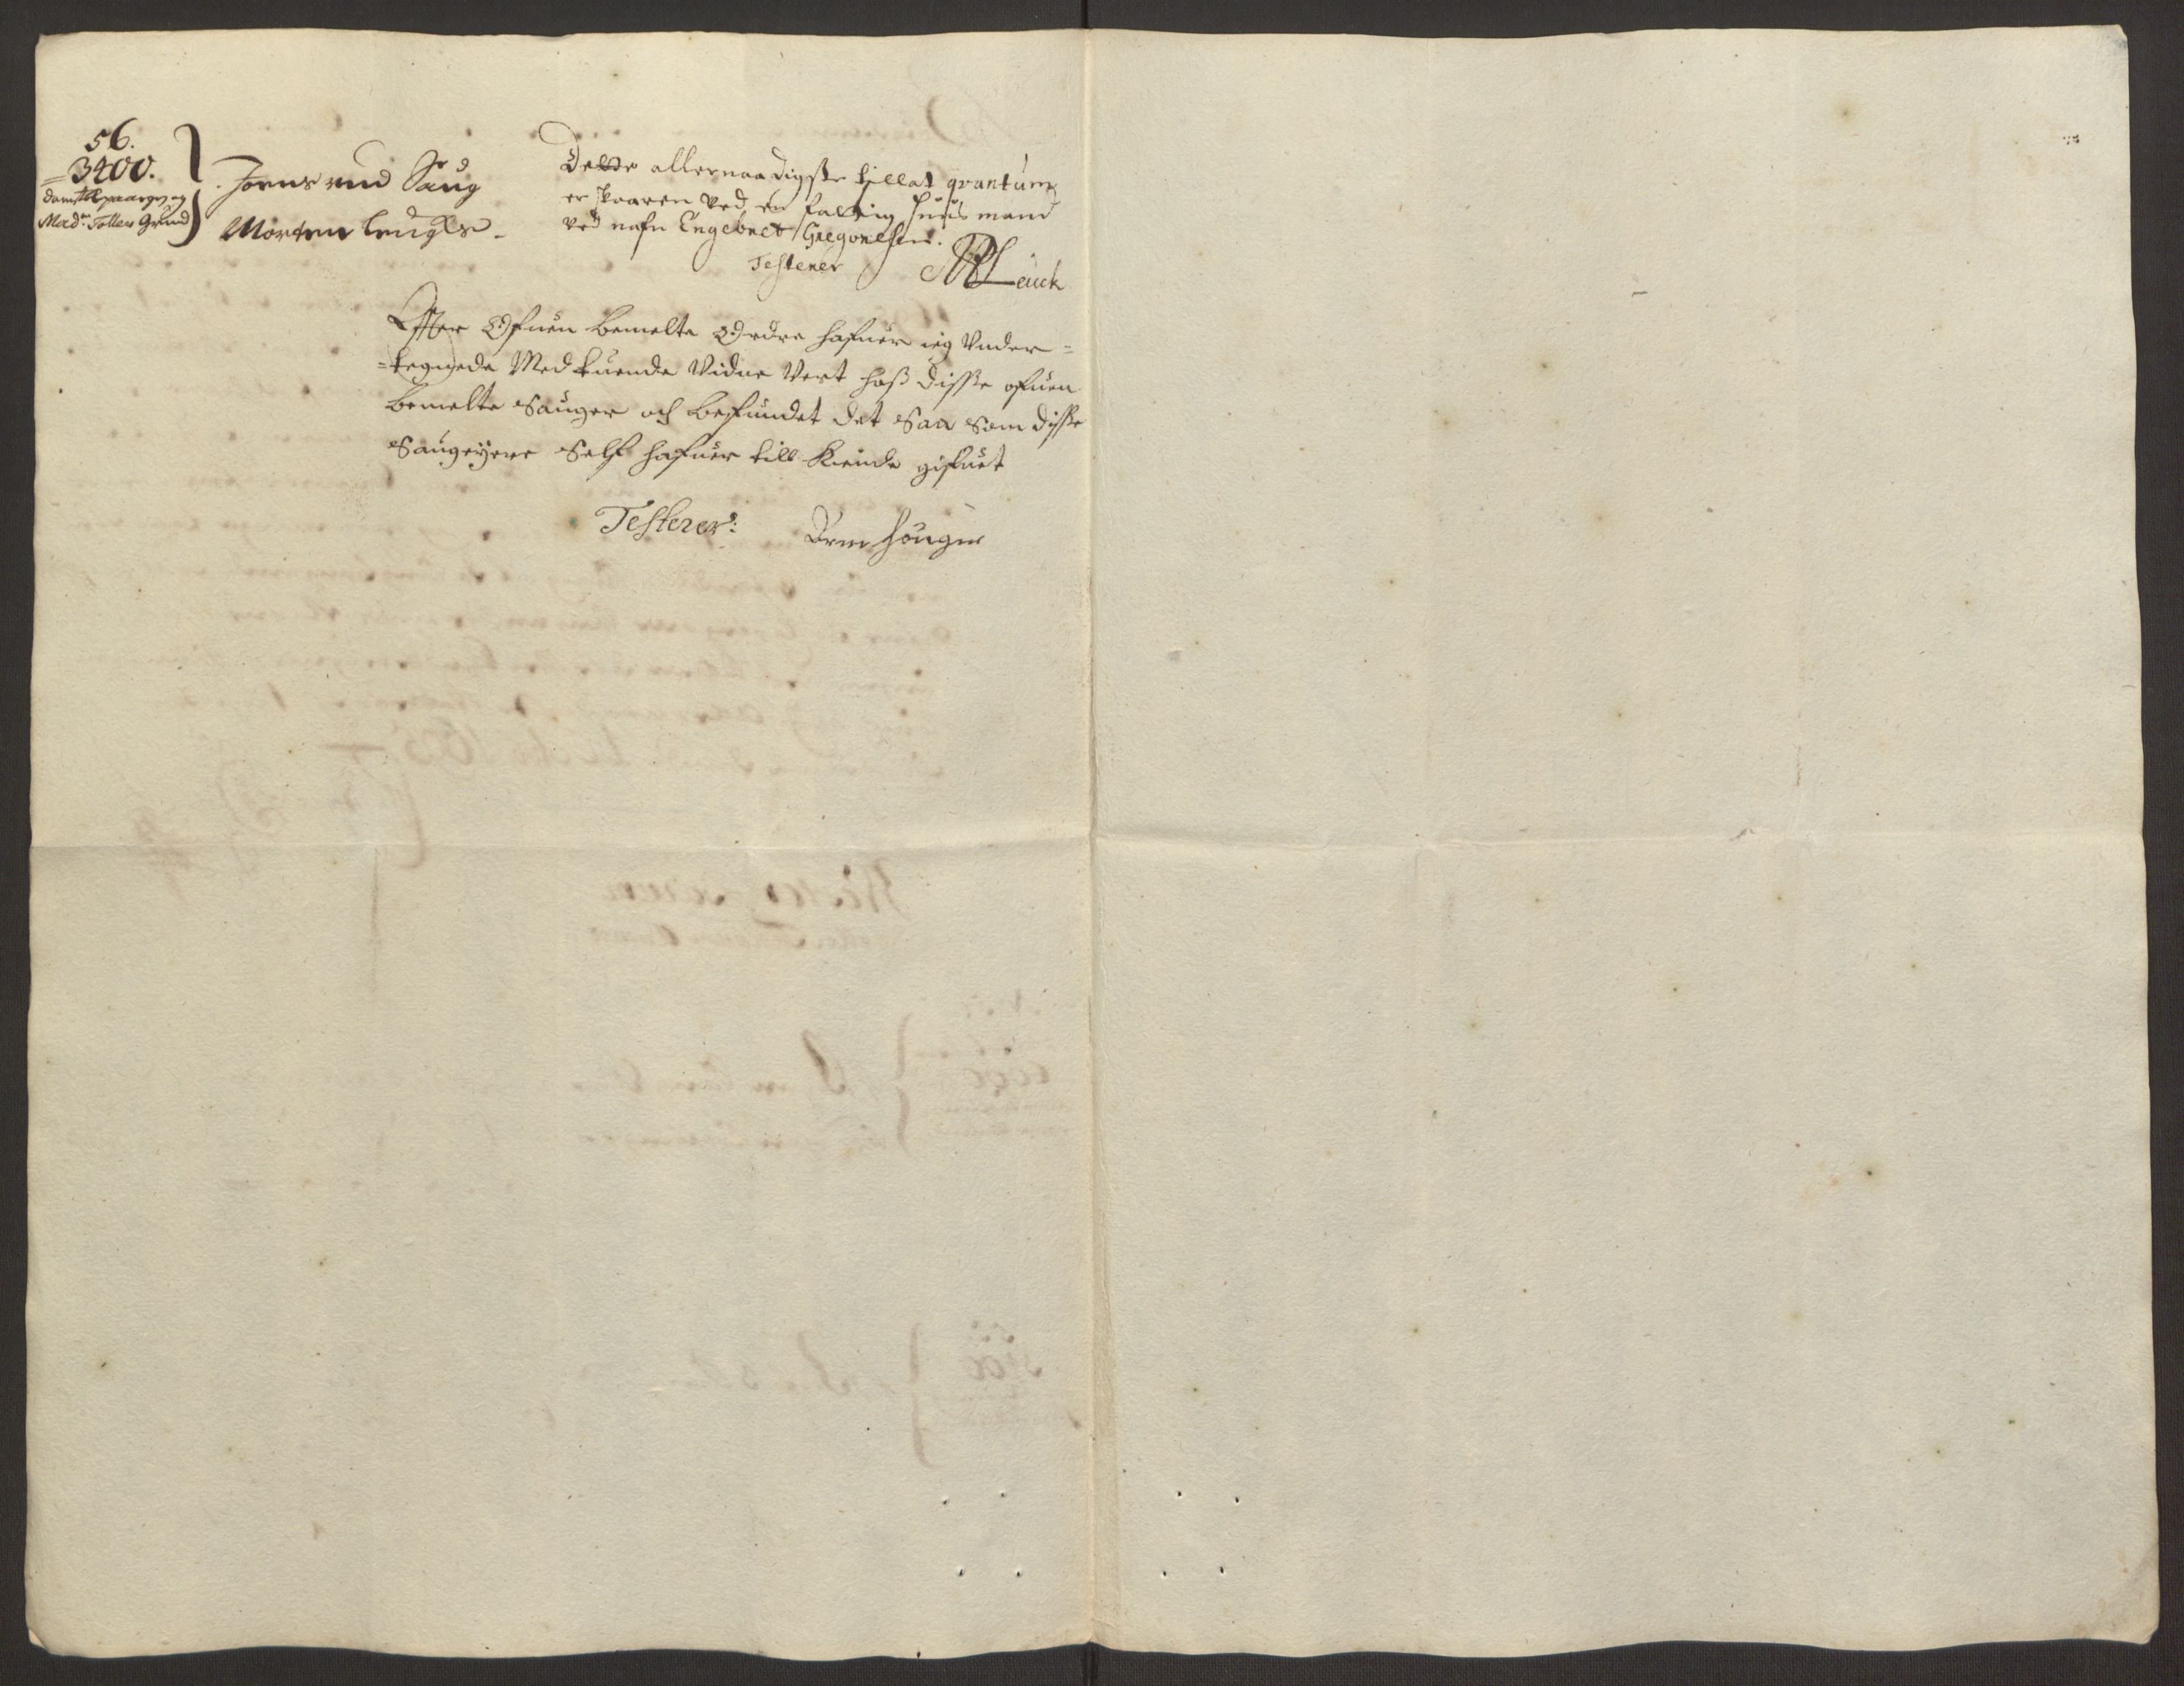 56.
=3400.
Mad: Tollers Grund
Jornsrud Saug
Morten Leugh
Dette allernaadigste tillat qvantum
er skaaren ved en fattig huus mand
ved nafn Engebret Gregorsen.
Testerer MLeuch
Effter Ofuen bemelte Ordre hafuer ieg Vnder=
=tegnede Med tuende Vidne Vert hoß disse ofuen
bemelte Sauger och befundet det saa som disse
Saugeyere Self hafuer till Kiende gifuet
Testerer: